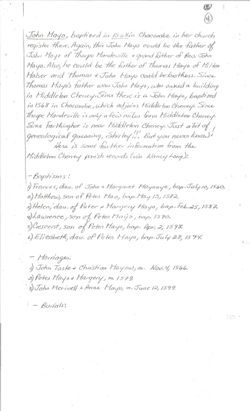 ④
John Mayo, baptized in 1568 in Chacombe, in her church
register there. Again, this John Mayo could be the father of
John Mayo of Thorpe Mandeville & grandfather of Rev. John
Mayo. Also, he could be the father of Thomas Mayo of
father and Thomas & John Mayo could be brothers. Since
Thomas Mayo's father was John Mayo, who owned a building
in Middleton Cheney. Since there is a John Mayo, baptized
in 1568 in Chacombe, which adjoins Middleton Cheney. Since
Thorpe Mandeville is only a few miles from Middleton Cheney.
Since Farthinghoe is near Middleton Cheney. Just a lot of
genealogical guessing, Shirley!!! But you never know!
Here is some further information from the
Middleton Cheney parish records (via Nancy Long):
- Baptisms:
1) Frances, dau. of John & Margaret Mayo, bap. July 10, 1560.
2) Matthew, son of Peter Mao, bap. May 15, 1582.
3) Helen, dau. of Peter & Margery Mayo, bap. Feb. 25, 1582.
4) Lawrence, son of Peter Mayo, bap. 1590.
5) son of Peter Mayo, bap. Apr. 2, 1592.
6) Elizabeth, dau. of Peter Mayo, bap. July 28, 1594.
- Marriages:
1) John Taste & Christian Mayo, m. Nov. 4, 1566.
2) Peter Mayo & Margery, m. 1579.
3) John Merivell & Anna Mayo, m. June 12, 1599.
- Burials: